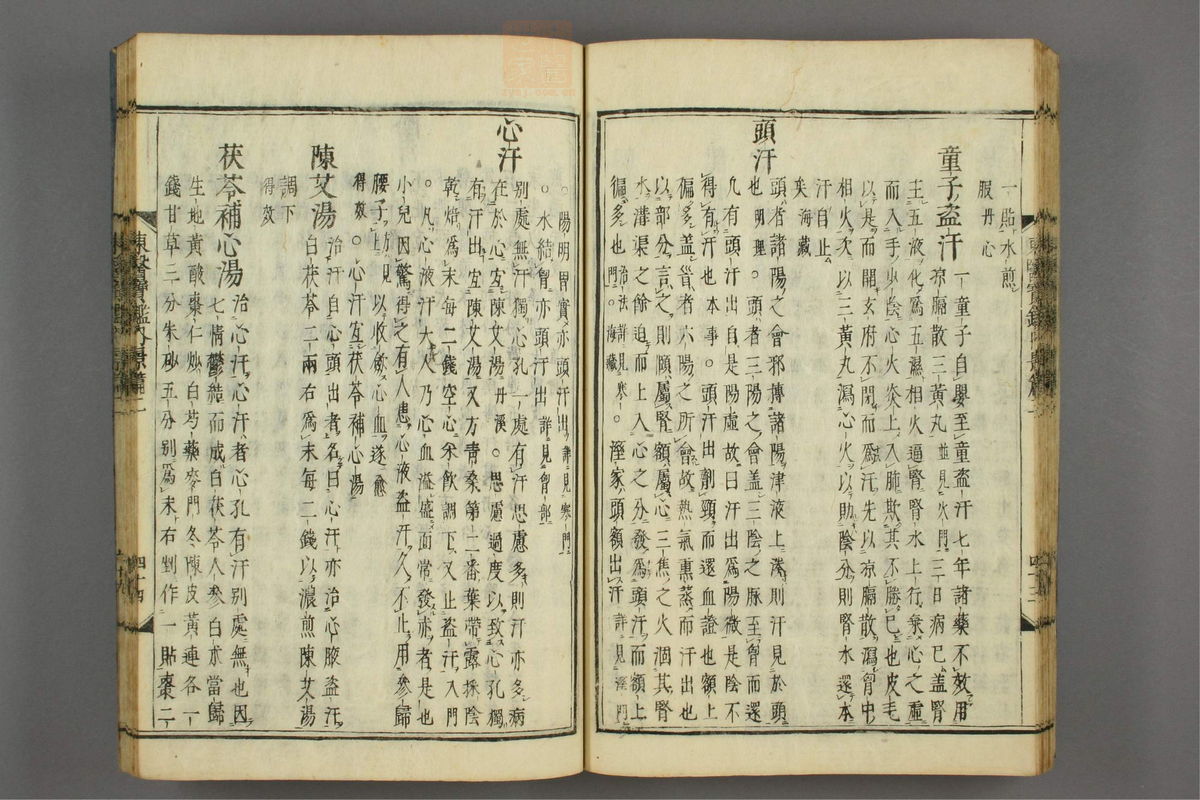 一貼水煎
服丹心
童子盜汗
一童子自嬰至童盜汗七年諸藥不效用
凉膈散三黃丸並見火門三日病已盖腎
主五液化爲五濕相火逼腎腎水上行乘心之虛
而入手少陰心火炎上入肺欺其不勝已也皮毛
以是而開玄府不閉而爲汗先以凉膈散瀉胃中
相火次以三黃丸瀉心火以助陰分則腎水還本
汗自止
矣海藏
頭汗
頭者諸陽之會邪搏諸陽津液上湊則汗見於頭
也明理。頭者三陽之會盖三陰之脉至胷而還
凡有頭汗出自是陽虛故曰汗出爲陽微是陰不
得有汗也本事。頭汗出劑頸而還血證也額上
偏多盖首者六陽之所會故熱氣熏蒸而汗出也
以部分言之則頤屬腎額屬心三焦之火涸其腎
水溝渠之餘迫而上入心之分發爲頭汗而額上
偏多也治法詳見寒門海藏。溼家頭額出汗詳見溼門
。陽明胃實亦頭汗出詳見寒門
。水結胷亦頭汗出詳見胷部
心汗
別處無汗獨心孔一處有汗思慮多則汗亦多病
在於心宜陳艾湯丹溪。思慮過度以致心孔獨
有汗出宜陳艾湯又方青桑第二番葉帶露採陰
乾焙爲末每二錢空心米飮調下又止盜汗入門
。凡心液汗大人乃心血溢盛面常發赤者是也
小兒因驚得之有人患心液盜汗久不止用參歸
腰子方見上以收斂心血遂愈
得效。心汗宜茯苓補心湯
陳艾湯
治汗自心頭出者名曰心汗亦治心腋盜汗
白茯苓二兩右爲末每二錢以濃煎陳艾湯
調下
得效
茯苓補心湯
治心汗心汗者心孔有汗別處無也因
七情鬱結而成白茯苓人參白朮當歸
生地黃酸棗仁炒白芍藥麥門冬陳皮黃連各一
錢甘草三分朱砂五分別爲末右剉作一貼棗二